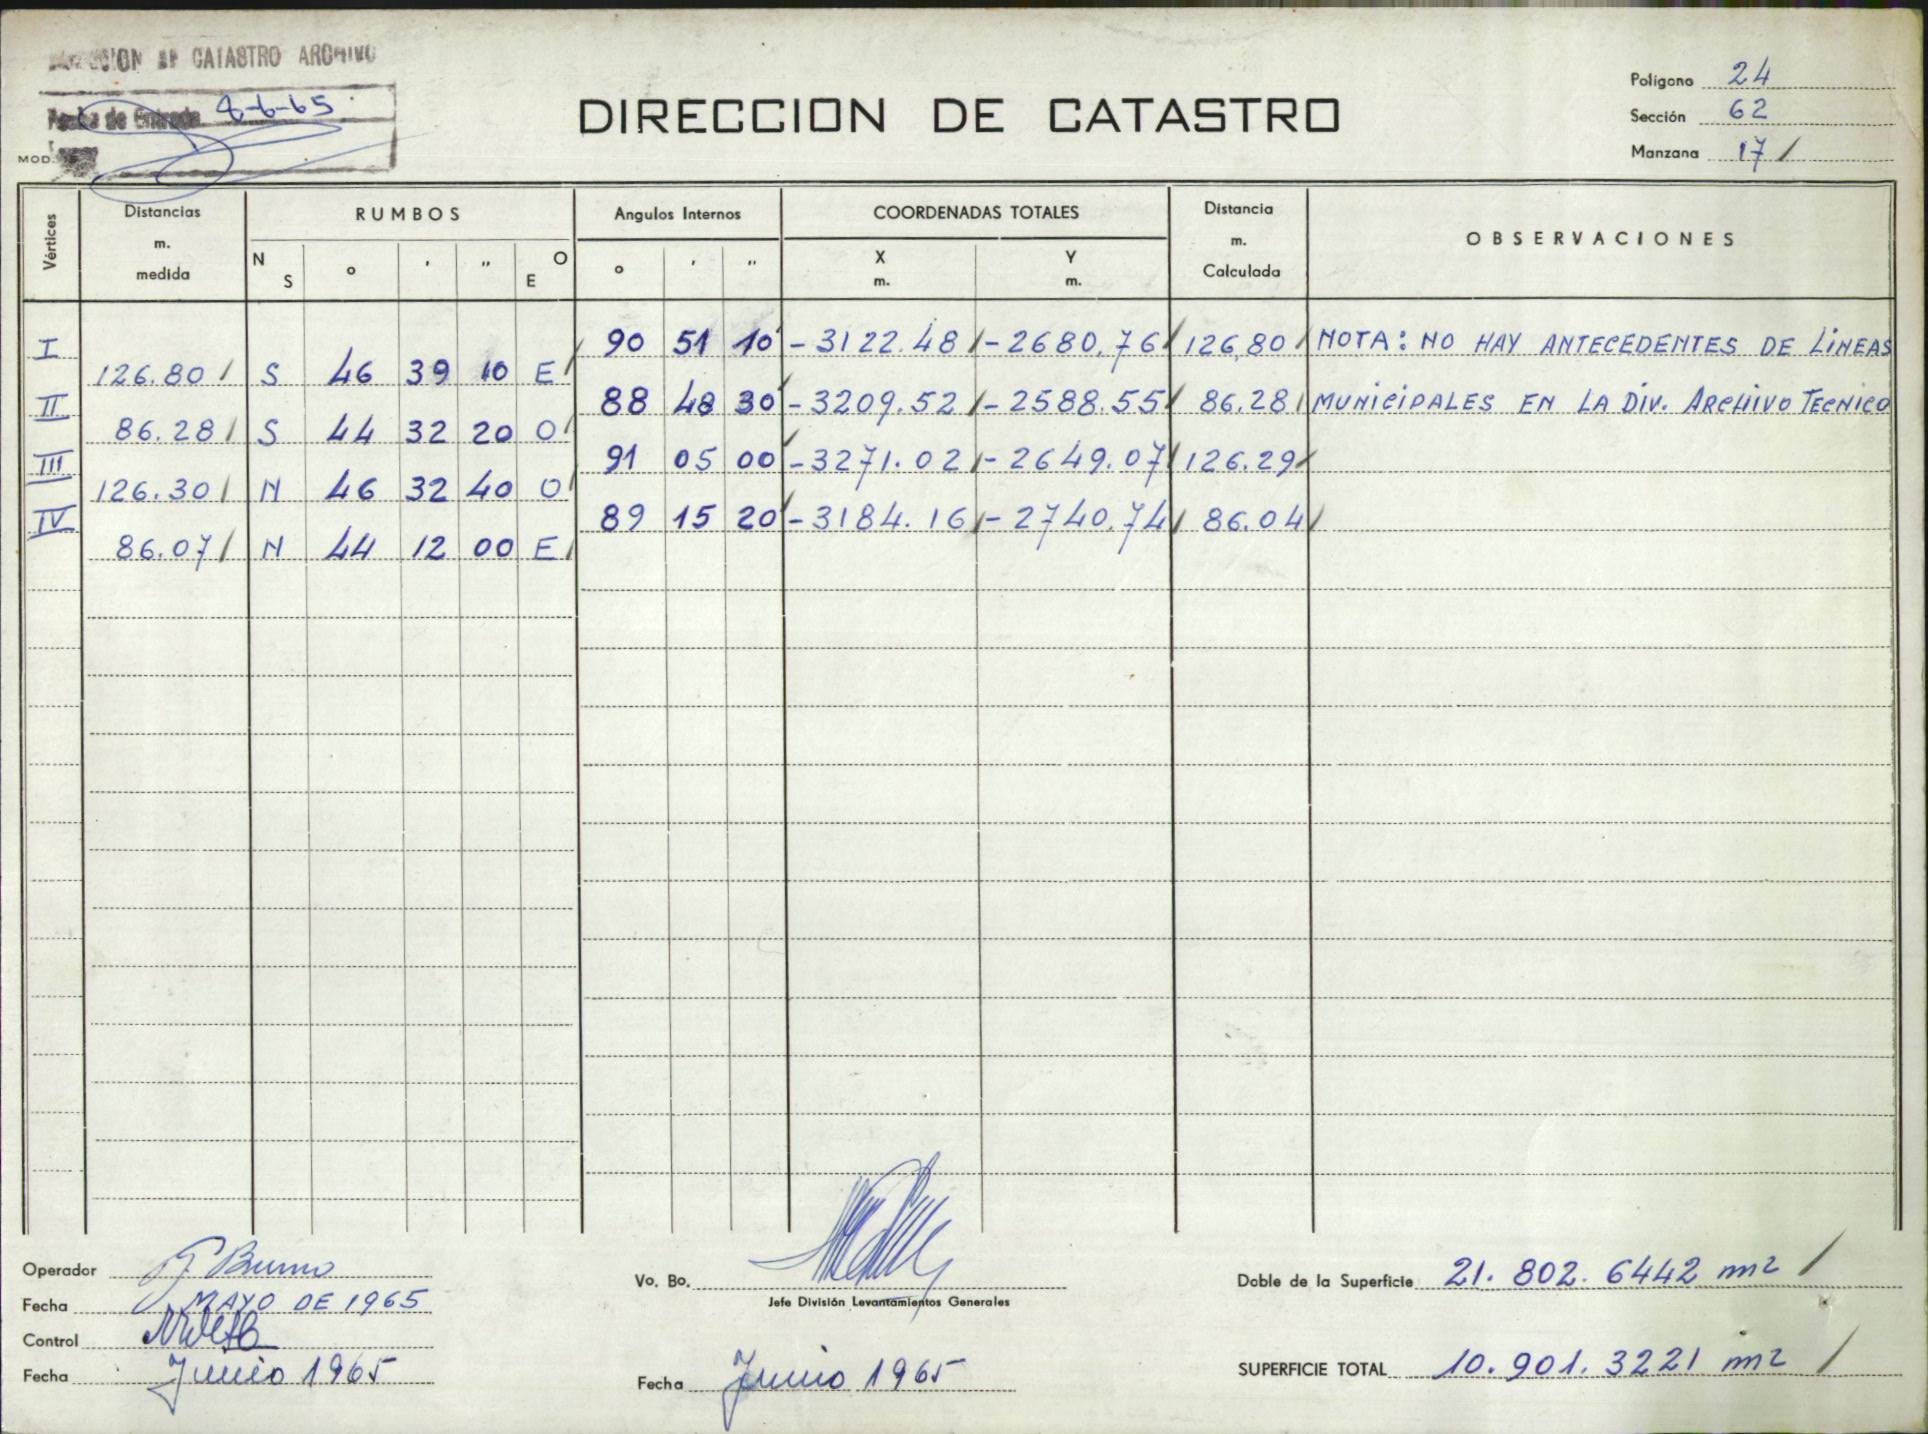 DIRECCION DE CATASTRO ARCHIVO
Fecha de Entrada 8-6-65
MOD.
DIRECCION DE CATASTRO
Polígono 24
Sección 62
Manzana 17 /
Vértices
Distancias m. medida
RUMBOS
N S ° ' " O E
Angulos Internos
° ' "
COORDENADAS TOTALES
X m. Y m.
Distancia m. Calculada
OBSERVACIONES
I 90 51 10 -3122.48 / -2680.76 / 126,80 / NOTA: NO HAY ANTECEDENTES DE LiNEAS
126.80 / S 46 39 10 E /
II 88 48 30 -3209.52 / -2588.55 / 86.28 / MUNiCiPALES EN LA Div. ARCHIVO TECNICO
86.28 / S 44 32 20 O /
III 91 05 00 -3271.02 / -2649.07 / 126.29 /
126.30 / N 46 32 40 O /
IV 89 15 20 -3184.16 / -2740.74 / 86.04 /
86.07 / N 44 12 00 E /
Operador Bruno
Fecha MAYO DE 1965
Control
Fecha Junio 1965
Vo. Bo.
Jefe División Levantamientos Generales
Fecha Junio 1965
Doble de la Superficie 21.802.6442 m2 /
SUPERFICIE TOTAL 10.901.3221 m2 /